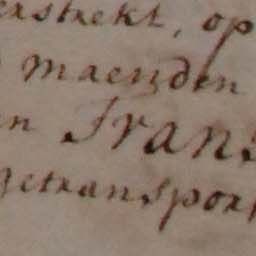 erstrekt, op
maenden
en Frans
getranspor